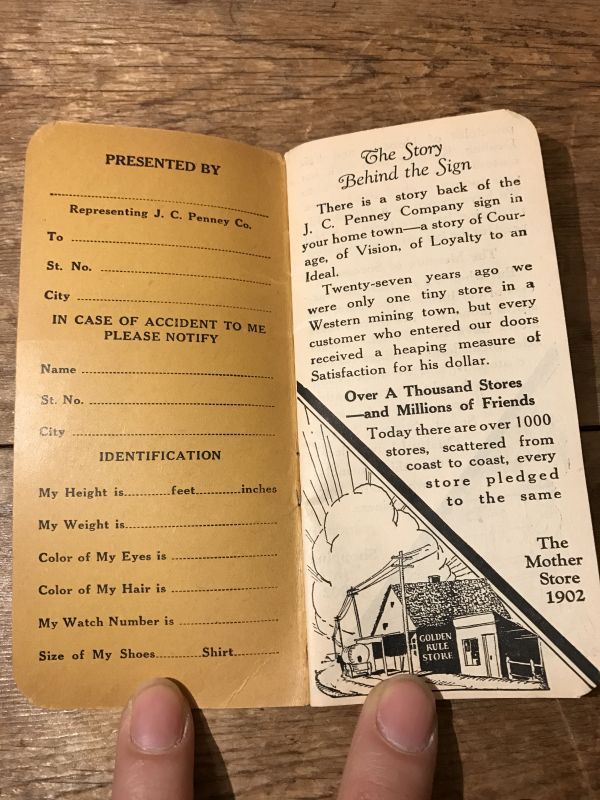 PRESENTED BY
Representing J. C. Penney Co.
To
St. No.
City
IN CASE OF ACCIDENT TO ME
PLEASE NOTIFY
Name
St. No.
City
IDENTIFICATION
My Height is feet inches
My Weight is
Color of My Eyes is
Color of My Hair is
My Watch Number is
Size of My Shoes Shirt
The Story
Behind the Sign
There is a story back of the
J. C. Penney Company sign in
your home town—a story of Cour-
age, of Vision, of Loyalty to an
Ideal.
Twenty-seven years ago we
were only one tiny store in a
Western mining town, but every
customer who entered our doors
received a heaping measure of
Satisfaction for his dollar.
Over A Thousand Stores
—and Millions of Friends
Today there are over 1000
stores, scattered from
coast to coast, every
store pledged
to the same
The
Mother
Store
1902
GOLDEN
RULE
STORE